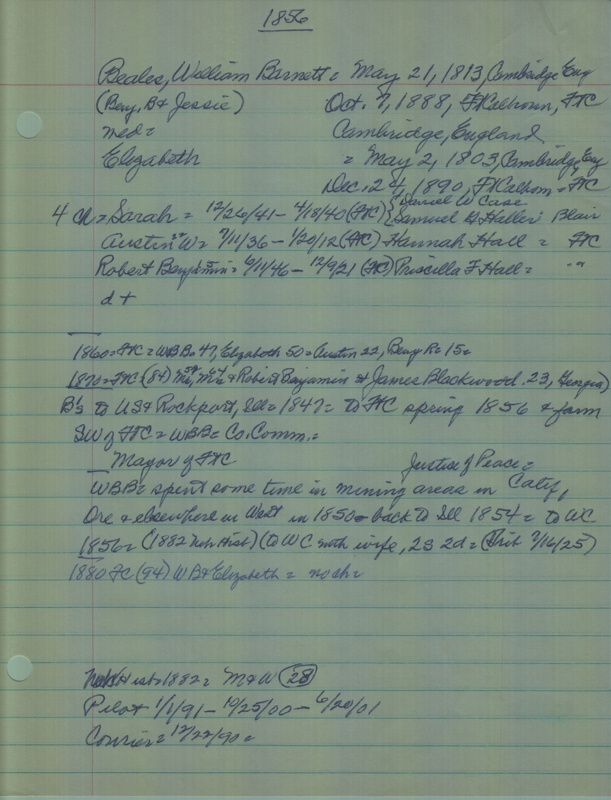 1856
Beales, William Barnett = May 21, 1813, Cambridge Eng
(Benj. B & Jessie) Oct. 7, 1888, Ft Calhoun, FTC
med = Cambridge, England
Elizabeth = May 2, 1803, Cambridge, Eng
Dec. 24, 1890, Ft Calhoun = FTC
4 ch = Sarah = 12/26/41 - 4/18/40 (FTC) { Daniel W Case
Samuel H Heller: Blair
Austin W = 7/11/36 - 1/20/12 (FTC) Hannah Hall = FTC
Robert Benjamin = 6/11/46 - 12/9/21 (FTC) Priscilla F Hall = " "
d +
1860 = FTC = WBB = 47, Elizabeth 50 = Austin 22, Benj R = 15 =
1870 = FTC = (84) & Robert Benjamin & James Blackwood, 23, Georgia)
B's to US & Rockport, Ill = 1847 = to FTC spring 1856 & farm
SW of FTC = WBB = Co. Comm. =
Mayor of FTC Justice of Peace =
WBB = spent some time in mining areas in Calif,
Ore & elsewhere in West in 1850 = back to Ill 1854 = to WC
1856 = (1882 Neb Hist) (to WC with wife, 2s 2d = (Trib 7/16/25)
1880 FC (94) WB & Elizabeth = no ch =
Neb Hist = 1882 = M & W (28)
Pilot 1/1/91 - 10/25/00 - 6/20/01
Courier = 12/22/90 =